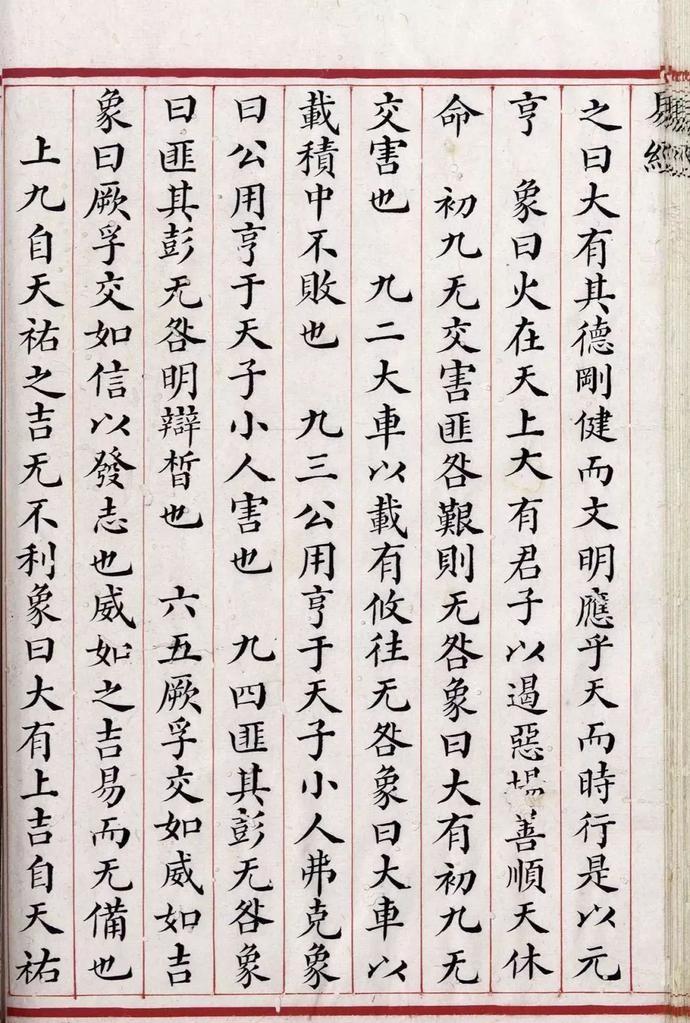 易經
之曰大有其德剛健而文明應乎天而時行是以元
亨　象曰火在天上大有君子以遏惡揚善順天休
命　初九无交害匪咎艱則无咎象曰大有初九无
交害也　九二大車以載有攸往无咎象曰大車以
載積中不敗也　九三公用亨于天子小人弗克象
曰公用亨于天子小人害也　九四匪其彭无咎象
曰匪其彭无咎明辯晢也　六五厥孚交如威如吉
象曰厥孚交如信以發志也威如之吉易而无備也
上九自天祐之吉无不利象曰大有上吉自天祐